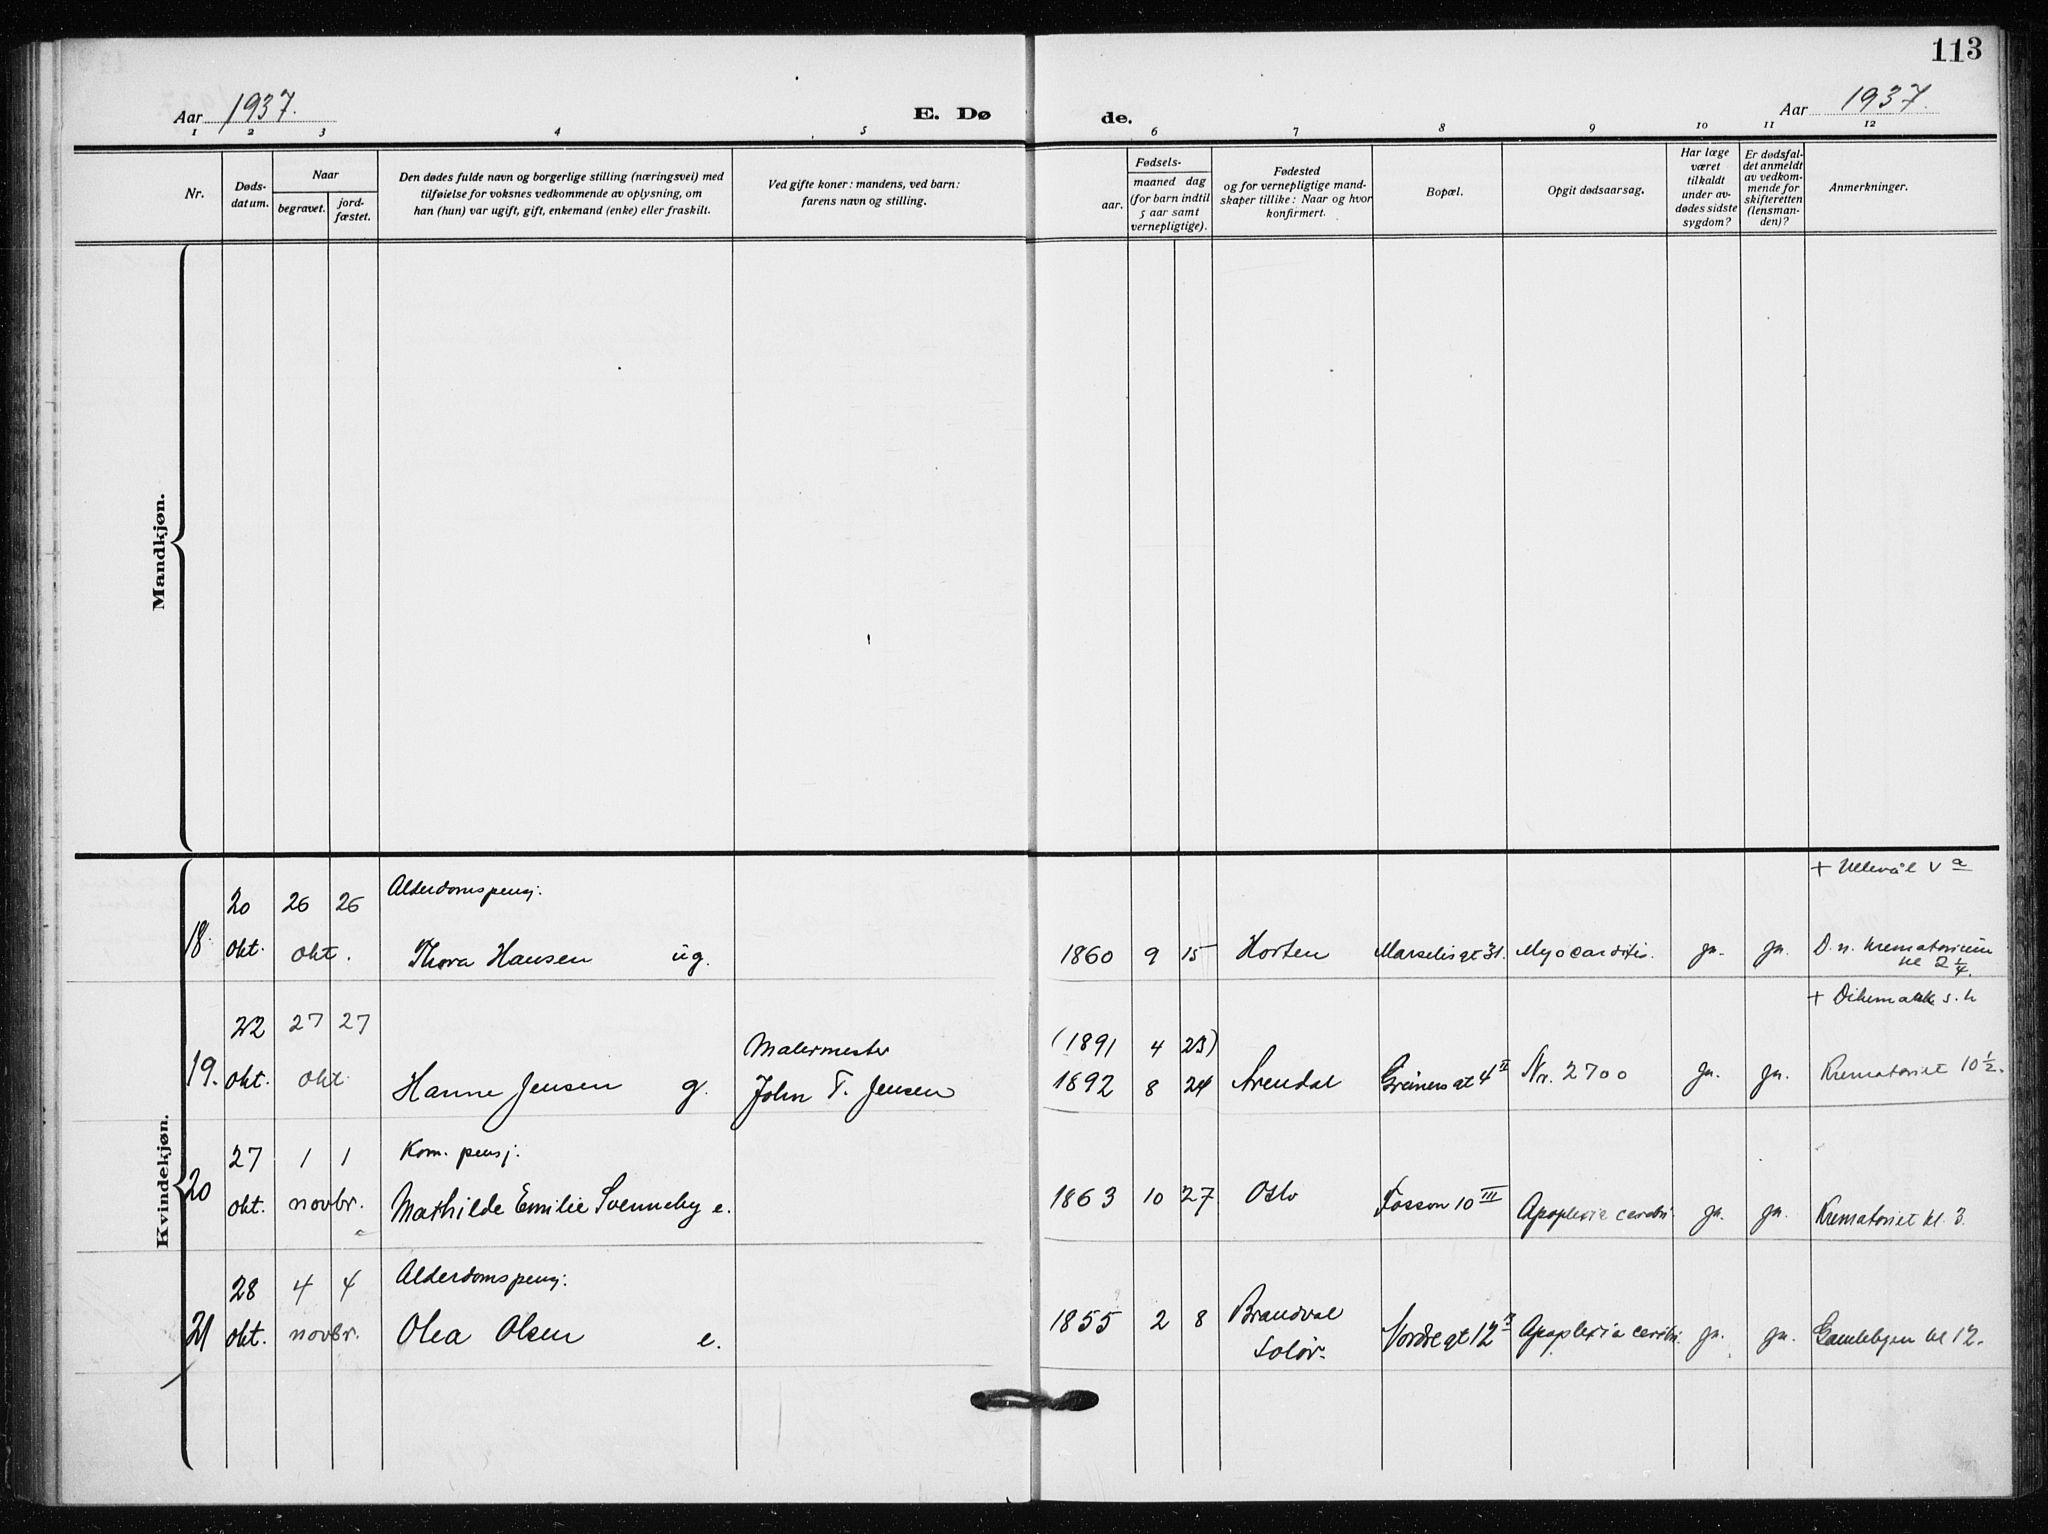 113
Aar 1937.
E. Dø
de.
Aar 1937.
1 2 3 4 5 6 7 8 9 10 11 12
Nr.
Døds-
datum.
Naar
begravet.
jord-
fæstet.
Den dødes fulde navn og borgerlige stilling (næringsvei) med
tilføielse for voksnes vedkommende av oplysning, om
han (hun) var ugift, gift, enkemand (enke) eller fraskilt.
Ved gifte koner: mandens, ved barn:
farens navn og stilling.
Fødsels-
aar.
maaned dag
(for barn indtil
5 aar samt
vernepligtige).
Fødested
og for vernepligtige mand-
skaper tillike: Naar og hvor
konfirmert.
Bopæl.
Opgit dødsaarsag.
Har læge
været
tilkaldt
under av-
dødes sidste
sygdom?
Er dødsfal-
det anmeldt
av vedkom-
mende for
skifteretten
(lensman-
den)?
Anmerkninger.
Mandkjøn.
Kvindekjøn.
+ Ullevål v a
20 26 26 Alderdomspensj.
18. okt. okt. Thora Hansen ug. 1860 9 15 Horten Marselisgt 31. Myocarditis. ja. ja. D. n. krematorium
kl 2 1/4.
+ Dikemark s. h
22 27 27 Malermester (1891 4 23)
19. okt. okt. Hanne Jensen g. John T. Jensen 1892 8 24 Arendal Greinersgt 4 II Nr. 2700 ja. ja. Krematoriet 10 1/2.
27 1 1 Kom. pensj.
20 okt. novbr. Mathilde Emilie Svenneby e. 1863 10 27 Oslo Fosson 10 III Apoplexia cerebri. ja. ja. Krematoriet kl. 3.
28 4 4 Alderdomspensj.
21 okt. novbr. Olea Olsen e. 1855 2 8 Brandval
Solør. Nordregt 12 Apoplexia cerebri. ja. ja. Gamlebyen kl 12.